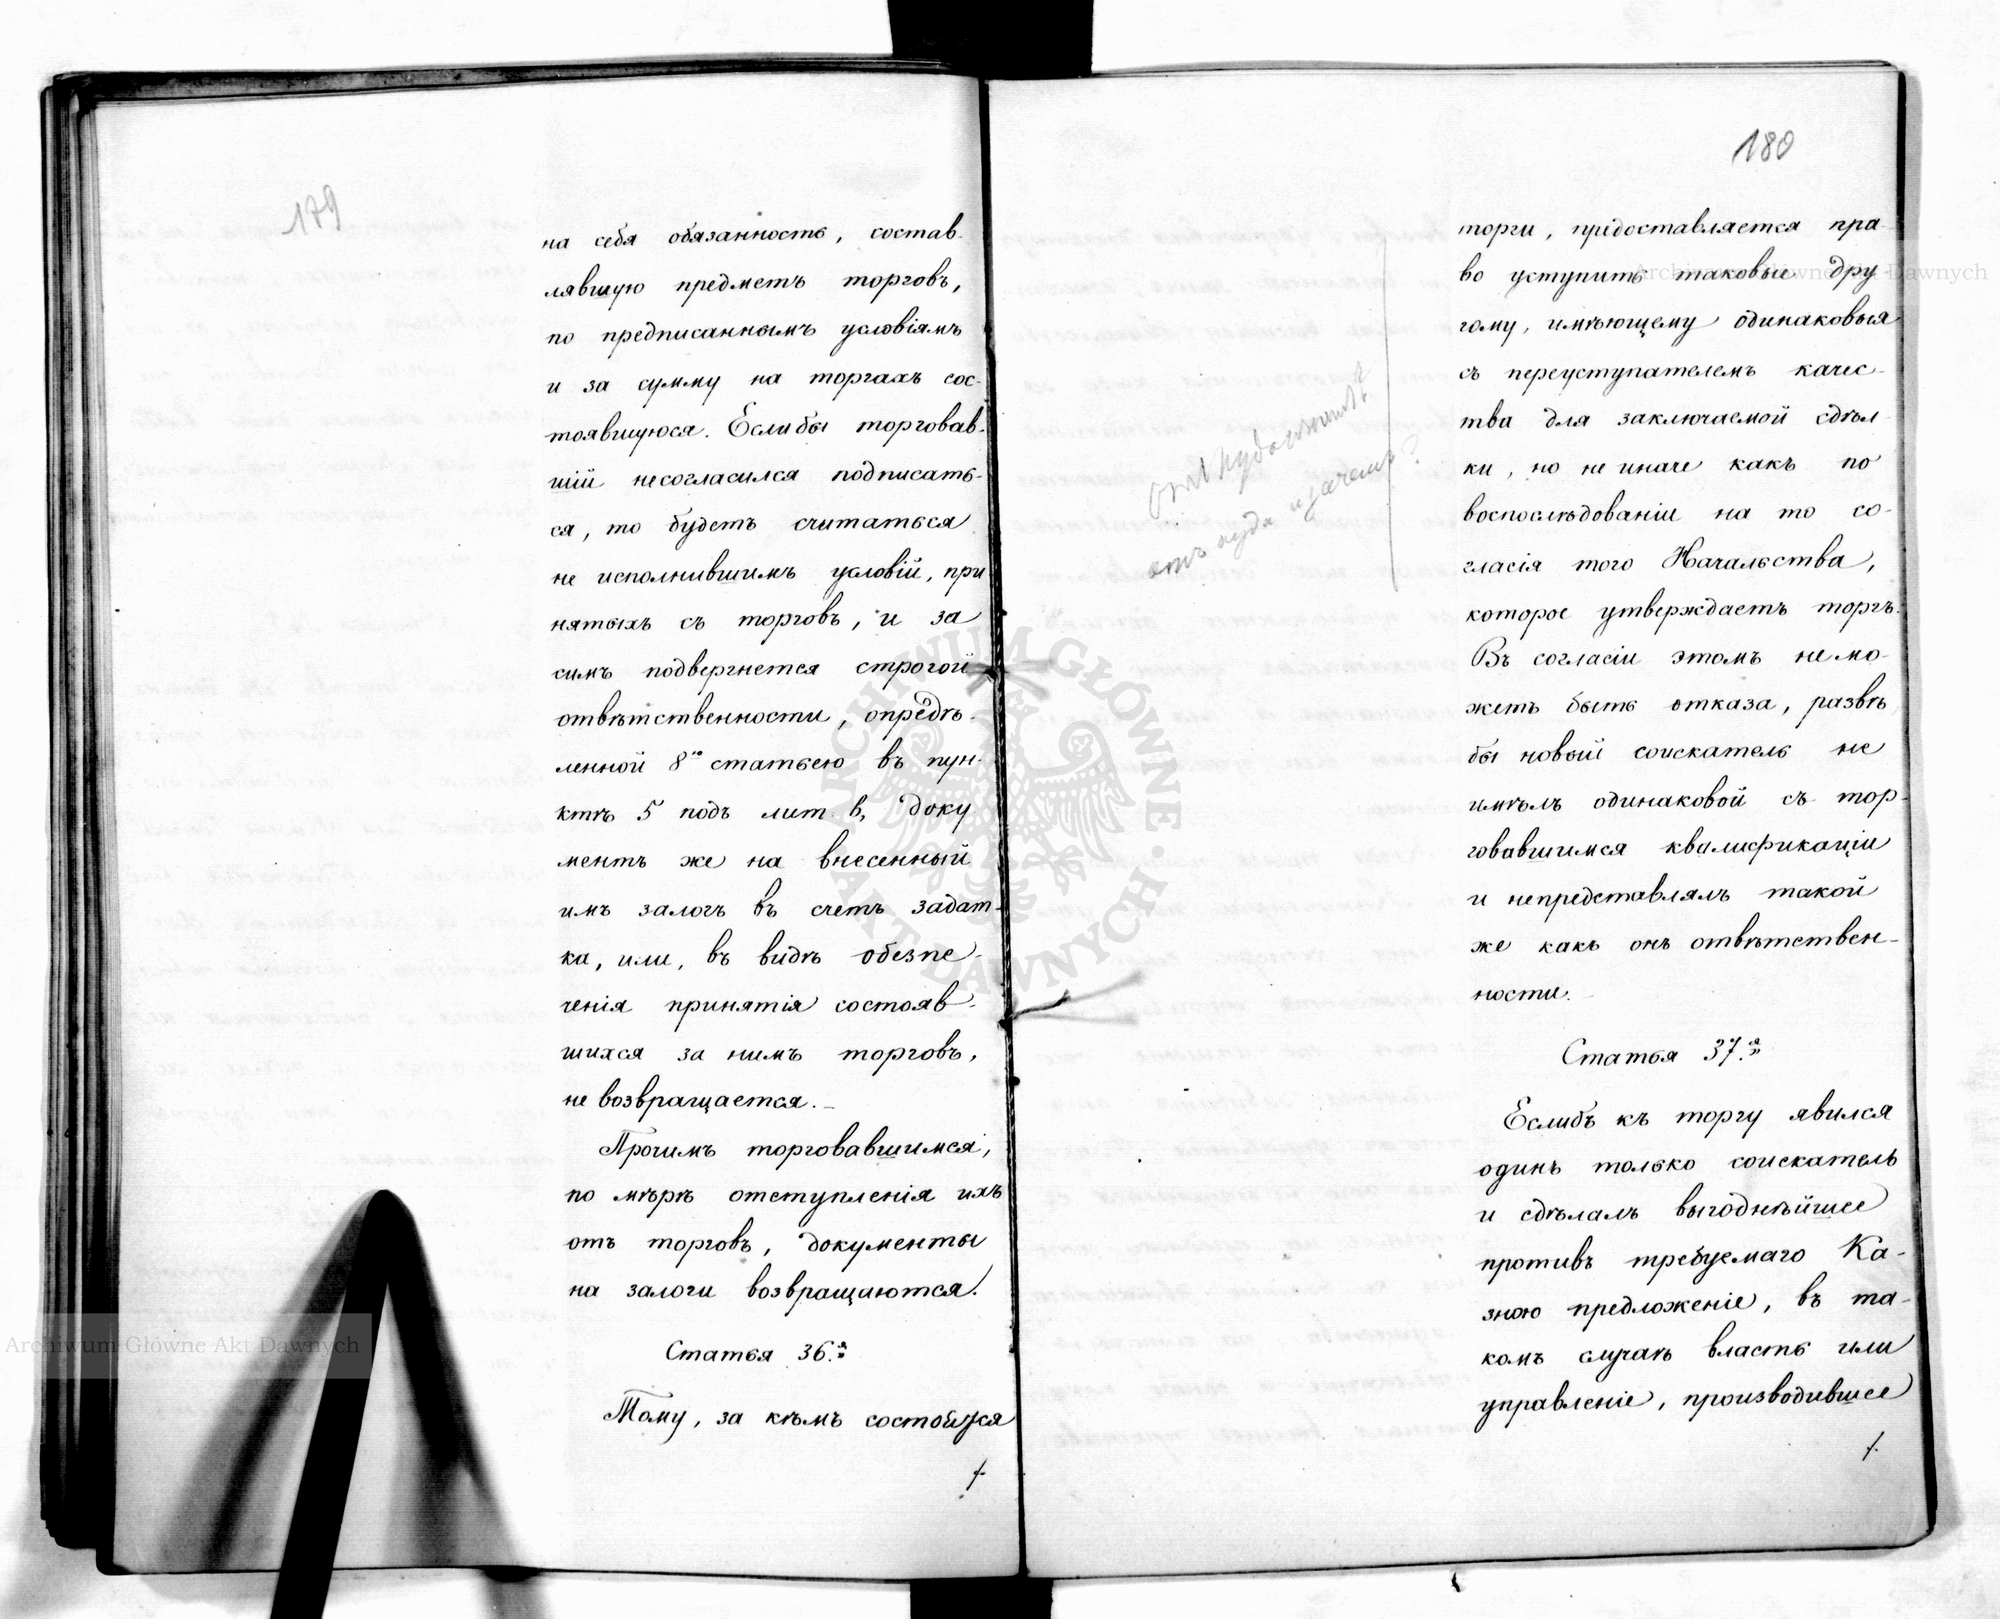 179
на себя обязанность, состав-
лявшую предметъ торговъ,
по предписаннымъ условіямъ
и за сумму на торгахъ сос-
тоявшуюся. Еслибы торговав-
шій несогласился подписать-
ся, то будетъ считаться
не исполнившимъ условій, при
нятыхъ съ торговъ, и за
симъ подвергнется строгой
отвѣтственности, опредѣ-
ленной 8ю статьею въ пун-
ктѣ 5 подъ лит. в, доку
ментъ же на внесенный
имъ залогъ въ счетъ задат-
ка, или, въ видѣ обезпе-
ченія принятія состояв-
шихся за нимъ торговъ,
не возвращается. –
Прочимъ торговавшимся,
по мѣрѣ отступленія ихъ
отъ торговъ, документы
на залоги возвращаются.
Статья 36.я
Тому, за кѣмъ состоятся
180
торги, предоставляется пра-
во уступить таковые дру
гому, имѣющему одинаковыя
съ переуступателемъ качес-
тва для заключаемой сдѣл-
ки, но не иначе какъ по
воспослѣдованіи на то со-
гласія того Начальства,
которое утверждаетъ торгъ.
Въ согласіи этомъ не мо-
жетъ быть отказа, развѣ
бы новый соискатель не
имѣлъ одинаковой съ тор-
говавшимся квалификаціи
и непредставлялъ такой
же какъ онъ отвѣтствен-
ности. –
отъ куда и зачемъ?
Статья 37.я
Еслибъ къ торгу явился
одинъ только соискатель
и сдѣлалъ выгоднѣйшее
противъ требуемаго Ка-
зною предложеніе, въ та-
комъ случаѣ власть или
управленіе, производившее
ARCHIWUM GŁÓWNE AKT DAWNYCH
Archiwum Główne Akt Dawnych
Archiwum Główne Akt Dawnych